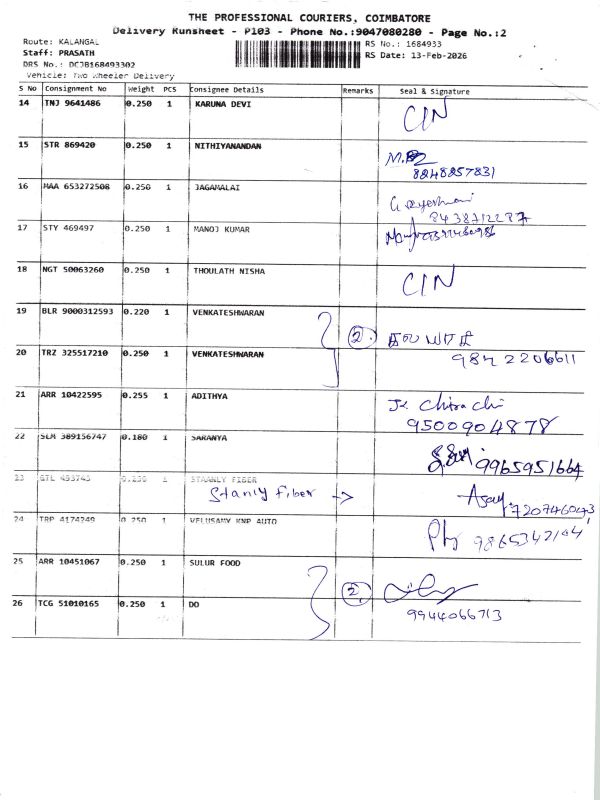 THE PROFESSIONAL COURIERS, COIMBATORE
Delivery Runsheet - P103 - Phone No.:9047080280 - Page No.:2
Route: KALANGAL
RS No.: 1684933
Staff: PRASATH
RS Date: 13-Feb-2026
DRS No.: DCJB168493302
Vehicle: Two Wheeler Delivery
S No Consignment No Weight PCS Consignee Details Remarks Seal & Signature
14 TNJ 9641486 0.250 1 KARUNA DEVI
C/N
15 STR 869420 0.250 1 NITHIYANANDAN
8248857831
16 MAA 653272508 0.250 1 JAGAMALAI
8438712287
17 STY 469497 0.250 1 MANOJ KUMAR
18 NGT 50063260 0.250 1 THOULATH NISHA
C/N
19 BLR 9000312593 0.220 1 VENKATESHWARAN
2.
20 TRZ 325517210 0.250 1 VENKATESHWARAN
9842206611
21 ARR 10422595 0.255 1 ADITHYA
9500904878
22 SLM 389156747 0.180 1 SARANYA
9965951664
23 GTL 493743 0.250 1 STAANLY FIBER
Stanly Fiber →
7207460431
24 TRP 4174249 0.250 1 VELUSAMY KNP AUTO
9865342104
25 ARR 10451067 0.250 1 SULUR FOOD
2.
26 TCG 51010165 0.250 1 DO
9944066713